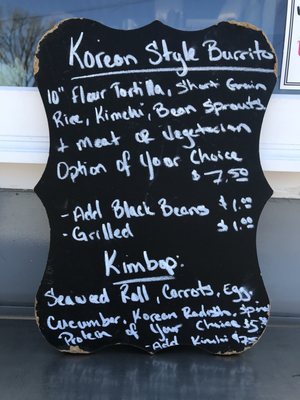 Korean Style Burrito
10" Flour Tortilla, Short Grain
Rice, Kimchi, Bean Sprouts
+ Meat or Vegetarian
Option of Your Choice
$7.50
- Add Black Beans $1.00
- Grilled $1.00
Kimbap:
Seaweed Roll, Carrots, Egg,
Cucumber, Korean Radish,
Protein of Your Choice $5
- Add Kimchi